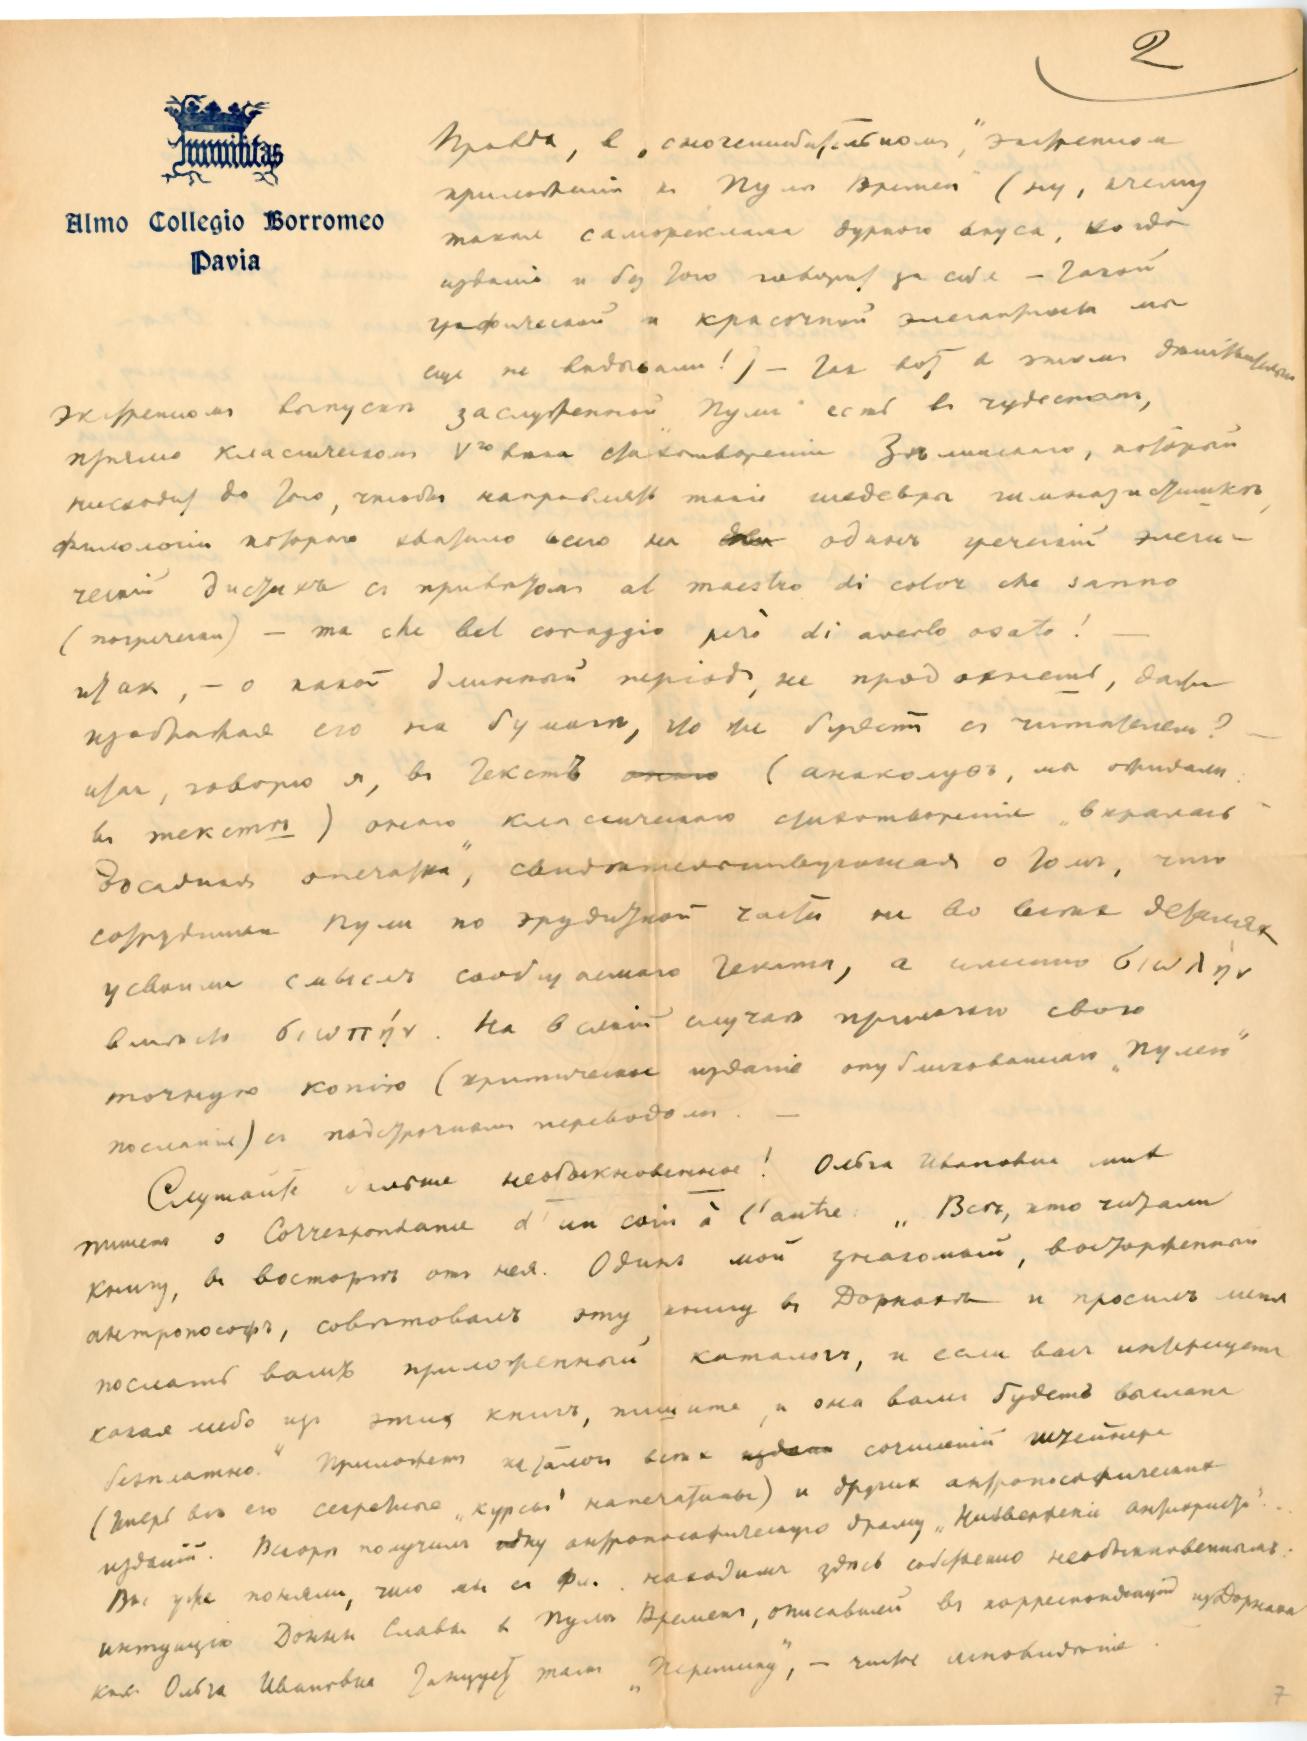 2
Humilitas
Almo Collegio Borromeo
Pavia
Правда, в „сногсшибательномъ", экстренном
приложении к Пулѣ Времен (ну, к чему
такая самореклама дурного вкуса, когда
издание и без того говорит за себя — такой
графической и красочной элегантности мы
еще не видывали!) — так вот в этом действительно
экстренном выпуске заслуженной „Пули" есть в чудесном,
прямо классическом V го века стихотворении Зѣлинского, который
нисходит до того, чтобы направлять такие шедевры гимназистишкѣ,
филологии которого хватило всего на один греческий элеги-
ческий дистихъ с привѣтом al maestro di color che sanno
(погречески) — ma che bel coraggio però di averlo osato! —
итак, — о какой длинный период, не продохнешь, даже
изображая его на бумагѣ, что же будет с читателем? —
итак, говорю я, в текстъ (анаколуф, мы ожидали:
в текстѣ) оного классического стихотворения „вкралась
досадная опечатка", свидѣтельствующая о том, что
сотрудники Пули по эрудитной части не во всѣх деталях
усвоили смыслъ сообщаемого текста, а именно σιωλήν
вмѣсто σιωπήν. На всякий случай прилагаю свою
точную копию (критическое издание опубликованного „Пулею"
послания) с подстрочным переводом. —
Слушайте дальше необыкновенное! Ольга Ивановна мнѣ
пишет о Correspondance d'un coin à l'autre: „Всѣ, кто читали
книгу, в восторгѣ от нея. Один мой знакомый, восторженный
антропософъ, совѣтовалъ эту книгу в Дорнахѣ и просилъ меня
послать вамъ приложенный каталогъ, и если вас интересует
какая либо из этих книгъ, пишите, и она вам будетъ выслана
безплатно." Приложен каталог всѣх сочинений Штейнера
(теперь всѣ его секретные „курсы" напечатаны) и других антропософических
изданий. Вскорѣ получил одну антропософическую драму „Низвержение антихриста"...
Вы уже поняли, что мы с Фл. находим здѣсь собственно необыкновеннымъ:
интуицию Донны Славы в Пулѣ Времен, описавшей в корреспонденции из Дорнаха
как Ольга Ивановна танцует там „Персишку", — чистое ясновидѣние.
7